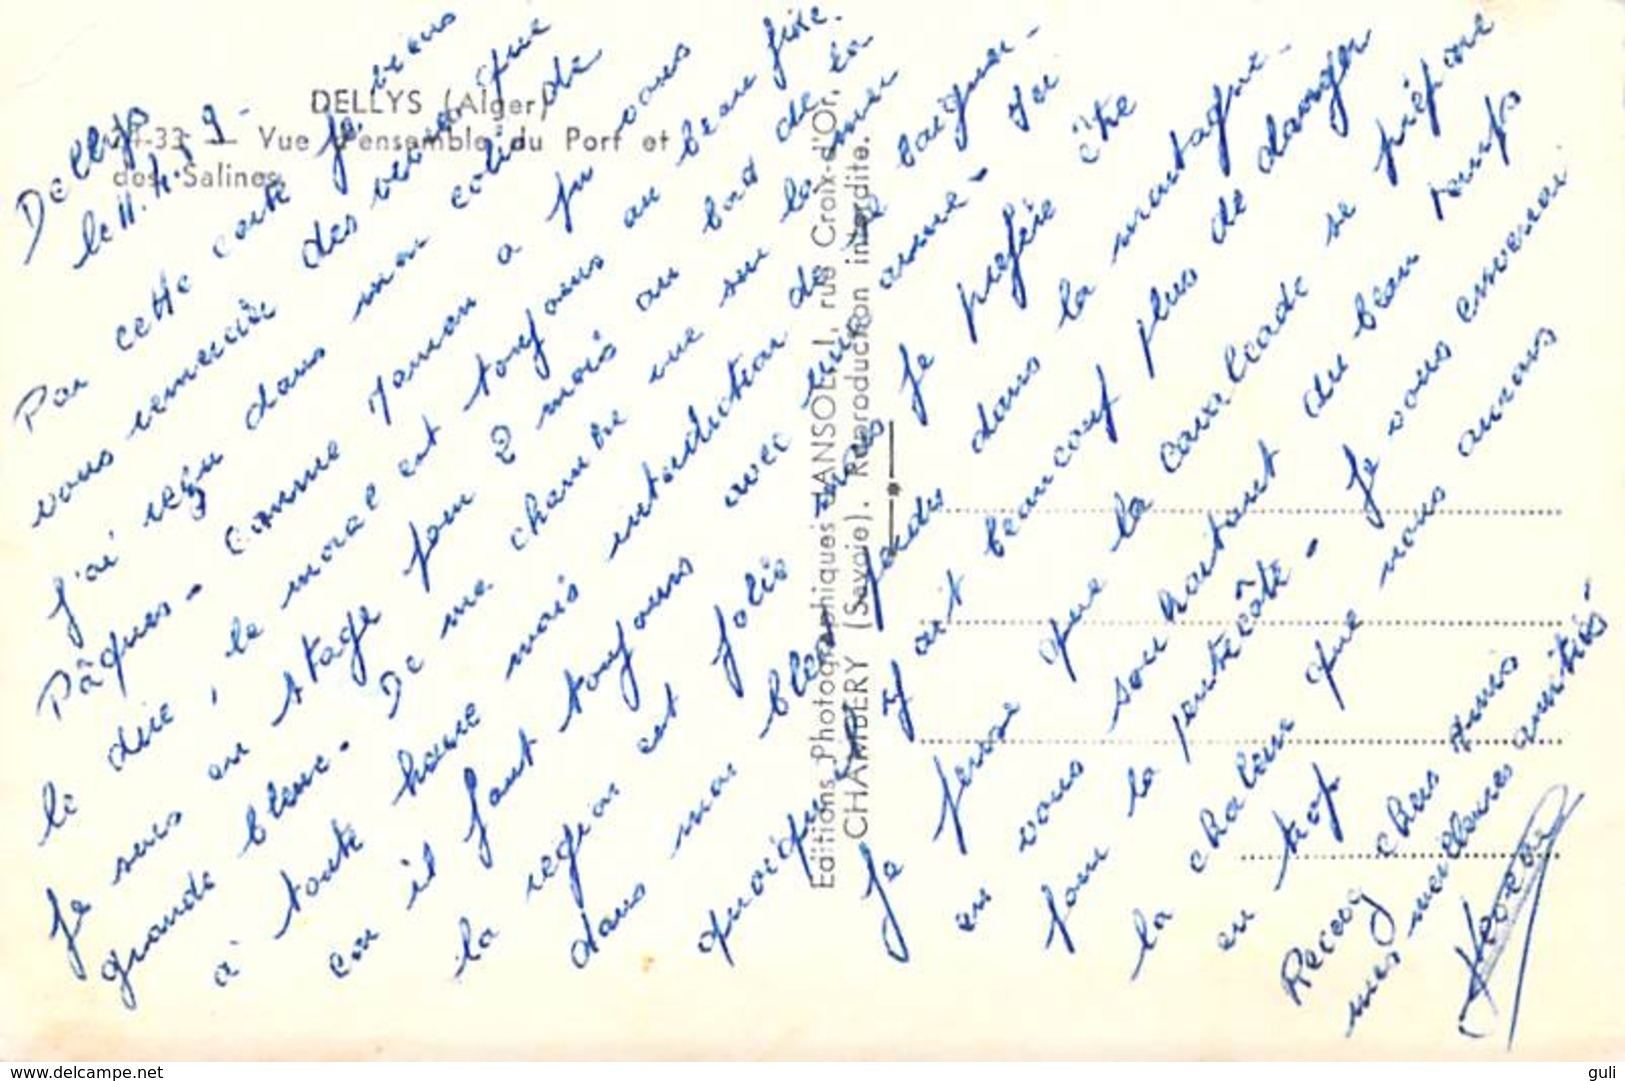 DELLYS (Alger)
24-33 — Vue d'ensemble du Port et
des Salines
Dellys
le 11.4.59-
Par cette carte je viens
vous remercier des vœux que
j'ai reçu dans mon colis de
Pâques - comme maman a pu vous
le dire, le moral est toujours au beau fixe.
Je suis en stage pour 2 mois au bord de la
grande bleue - De ma chambre vue sur la mer
à toute heure mais interdiction de se baigner -
car il faut toujours avec une arme - Ici
la région est jolie mais je préfère être
dans mon bled perdu dans la montagne -
quoiqu' y ait beaucoup plus de danger
Je pense que la cavalcade se prépare
en vous souhaitant du beau temps
pour la pentecôte - Je vous enverrai
la chaleur que nous aurons
en trop
Recevez chers amis
mes meilleures amitiés -
Editions Photographiques JANSOL, 1, rue Croix-d'Or,
CHAMBERY (Savoie). Reproduction interdite.
www.delcampe.net
guli